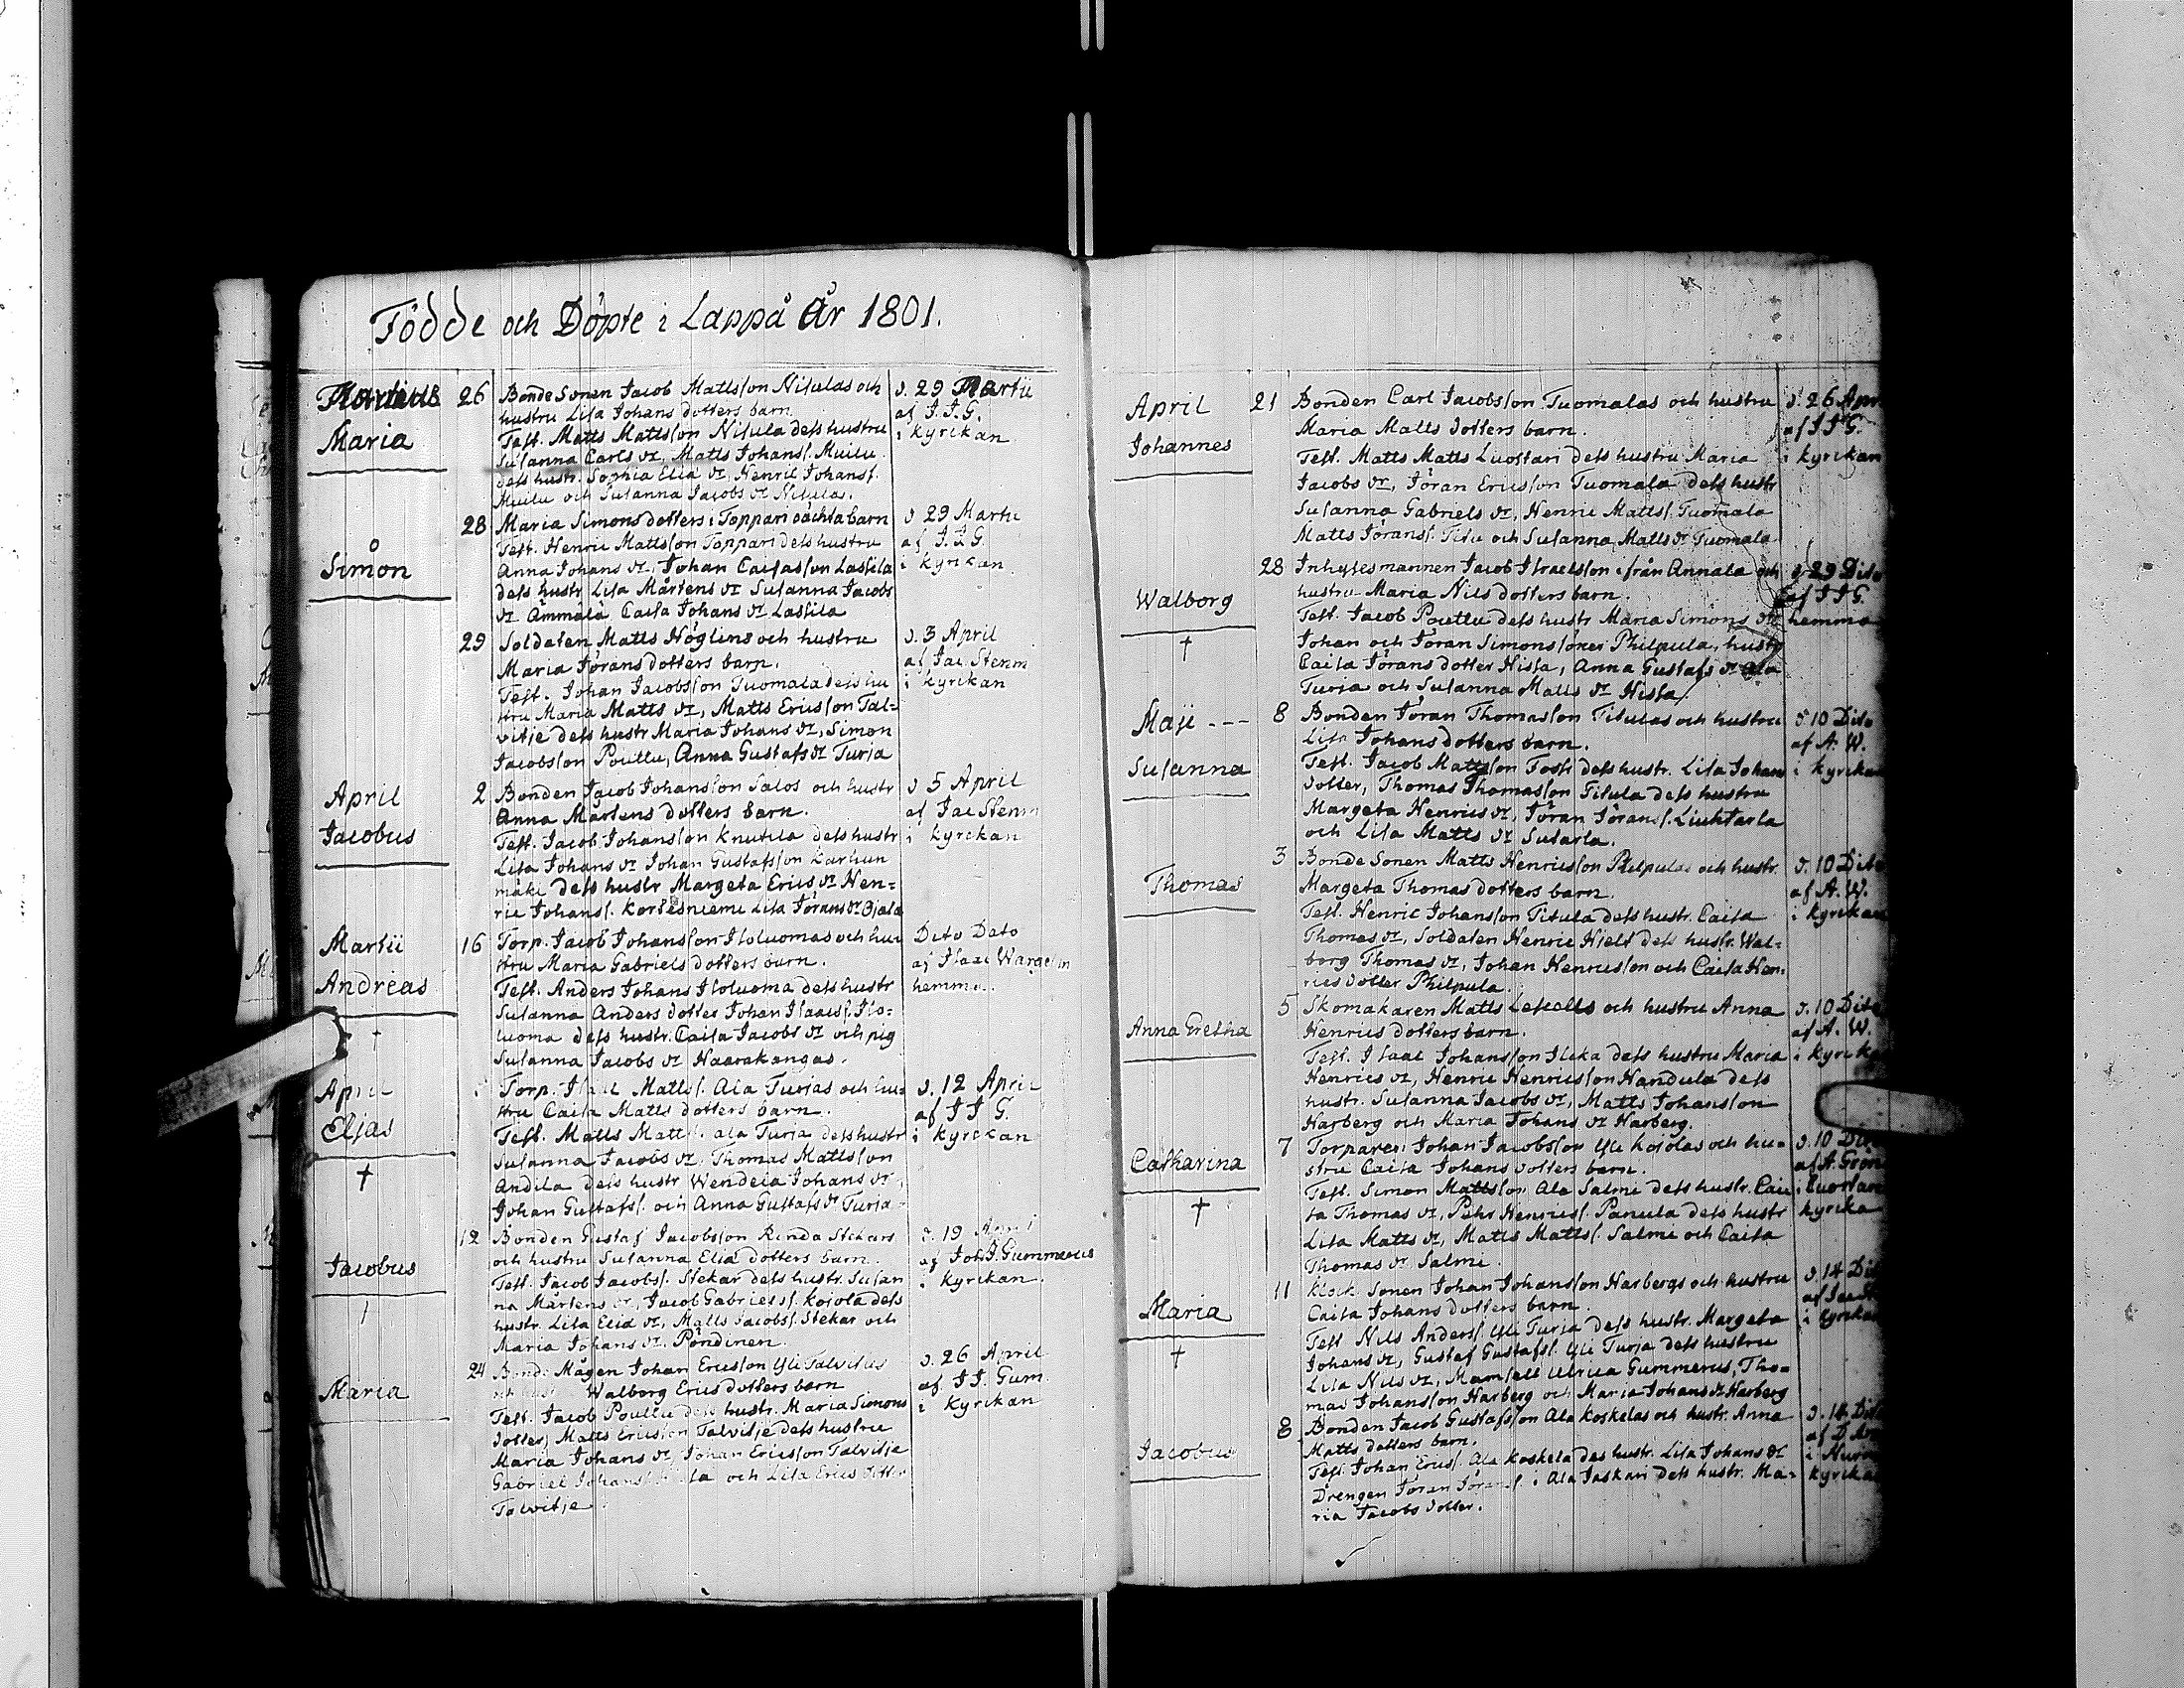 Födde och Döpte i Lappå År 1801.
Martius 26 Bonde Sonen Jacob Mattsson Nisulas och d. 29 Martii
hustru Lisa Johans dotters barn. af J. J. G.
Maria Test. Matts Mattsson Nisula dess hustru i kyrckan
Susanna Carls dr, Matts Johanss. Muilu
dess hustr. Sophia Elia dr, Henric Johanss.
Muilu och Susanna Jacobs dr Nisulas.
28 Maria Simons dotters i Toppari oächta barn d 29 Martii
Test. Henric Mattsson Toppari dess hustru af J. J. G.
Simon Anna Johans dr, Johan Caisasson Lassila i kyrckan
dess hustr Lisa Mårtens dr Susanna Jacobs
dr Ämmälä Caisa Johans dr Lassila
29 Soldaten Matts Höglins och hustru d. 3 April
Maria Jörans dotters barn. af Jac. Stenm
Test. Johan Jacobsson Tuomala dess hu i kyrckan
stru Maria Matts dr, Matts Ericsson Tal-
vitje dess hustr Maria Johans dr, Simon
Jacobsson Pouttu, Anna Gustafs dr Turja
April 2 Bonden Jacob Johansson Salos och hustr d 5 April
Anna Mårtens dotters barn. af Jac Stenm
Jacobus Test. Jacob Johansson Knutila dess hustr i kyrckan
Lisa Johans dr Johan Gustafsson Karhun
mäki dess hustr Margeta Erics dr Hen=
ric Johanss. Korkesniemi Lisa Jörans dr Ojala
Martii 16 Torp. Jacob Johansson Isoluomas och hu= Dito Dato
stru Maria Gabriels dotters barn. af Isaac Wargelin
Andreas Test. Anders Johans Isoluoma dess hustr hemma.
Susanna Anders dotter Johan Isaacss. Iso=
† luoma dess hustr. Caisa Jacobs dr och pig
Susanna Jacobs dr Haarakangas.
April Torp. Isaac Matts. Ala Turjas och hu= d. 12 April
stru Caisa Matts dotters barn. af J J G.
Eljas Test. Matts Matts. ala Turja dess hustr i kyrckan
Susanna Jacobs dr. Thomas Mattsson
† Andila dess hustr Wendela Johans dr,
Johan Gustafss. och Anna Gustafs dr Turja
12 Bonden Gustaf Jacobsson Rinda Stekars d. 19 April
och hustru Susanna Elia dotters barn. af Joh. J. Gummerus
Jacobus Test. Jacob Jacobs. Stekar dess hustr. Susan i kyrckan.
na Mårtens dr, Jacob Gabrielss. Kojola dess
† hustr. Lisa Elia dr, Matts Jacobs. Stekar och
Maria Johans dr. Pöndinen.
24 Bonde Mågen Johan Ericsson Yli Talvitjes d. 26 April
Maria Walborg Erics dotters barn af J J. Gum.
Test. Jacob Pouttu dess hustr. Maria Simons i Kyrckan
dotter, Matts Ericsson Talvitje dess hustru
Maria Johans dr, Johan Ericsson Talvitje
Gabriel Johanss. och Lisa Erics dotter
Talvitje.
April 21 Bonden Carl Jacobsson Tuomalas och hustru d. 26 Apr
Maria Matts dotters barn. af J J G.
Johannes Test. Matts Matts Luostari dess hustru Maria i kyrckan
Jacobs dr, Jöran Ericsson Tuomala dess hustr
Susanna Gabriels dr, Henric Matts. Tuomala
Matts Jöranss. Titu och Susanna Matts dr Tuomala
28 Inhyses mannen Jacob Israelsson ifrån Annala och d 29 Dito
Walborg hustru Maria Nils dotters barn. af J J G.
Test. Jacob Pouttu dess hustr Maria Simons dr hemma
† Johan och Jöran Simons söner Philpula, hustr
Caisa Jörans dotter Hissa, Anna Gustafs dr ala
Turja och Susanna Matts dr Hissa
Maji --- 8 Bonden Jöran Thomasson Titulas och hustru d 10 Dito
Lisa Johans dotters barn. af A. W.
Susanna Test. Jacob Mattsson Fossi dess hustr. Lisa Johans i kyrckan
dotter, Thomas Thomasson Titula dess hustru
Margeta Henrics dr, Jöran Jöranss. Liuhtarla
och Lisa Matts dr Sutarla.
3 Bonde Sonen Matts Henricsson Philpulas och hustr. d. 10 Dito
Thomas Margeta Thomas dotters barn. af A. W.
Test. Henric Johansson Titula dess hustr. Caisa i kyrckan
Thomas dr, Soldaten Henric Hielt dess hustr. Wal=
borg Thomas dr, Johan Henricsson och Caisa Hen=
rics dotter Philpula.
5 Skomakaren Matts Lepolts och hustru Anna d. 10 Dito
Anna Gretha Henrics dotters barn. af A. W.
Test. Isaac Johansson Ilkka dess hustru Maria i kyrcka
Henrics dr, Henric Henricsson Nandula dess
hustr. Susanna Jacobs dr, Matts Johansson
Harberg och Maria Johans dr Harberg.
Catharina 7 Torparen Johan Jacobsson Yli Kojolas och hu= d. 10 Dito
stru Caisa Johans dotters barn. af A. Grön
Test. Simon Mattsson Ala Salmi dess hustr. Cai i Cuortane
† sa Thomas dr, Pehr Henricss. Panula dess hustr kyrcka
Lisa Matts dr, Matts Matts. Salmi och Caisa
Thomas dr Salmi.
11 Klock. Sonen Johan Johansson Harbergs och hustru d. 14 Dit
Maria Caisa Johans dotters barn. af Jac
Test Nils Anders. Yli Turja dess hustr. Margeta i kyrckan
† Johans dr, Gustaf Gustafss. Yli Turja dess hustru
Lisa Nils dr, Mamsell Ulrica Gummerus, Tho=
mas Johansson Harberg och Maria Johans dr Harberg
8 Bonden Jacob Gustafsson Ala Koskelas och hustr. Anna d. 14 Dit
Jacobus Matts dotters barn.
Test. Johan Ericss. Ala Koskela des hustr. Lisa Johans dr
Drengen Jöran Jörans. i Ala Jaskari dess hustr. Ma= kyrcka
ria Jacobs dotter.